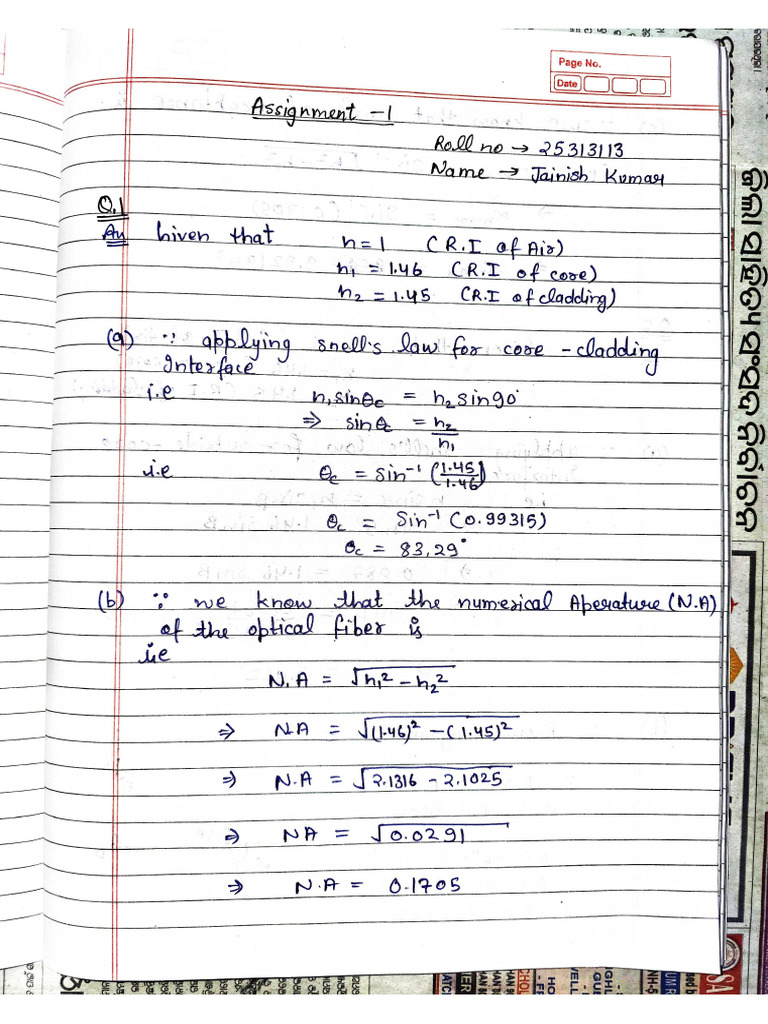 Page No.
Date
Assignment -1
Roll no → 25313113
Name → Jainish Kumar
Q.1
An Given that n = 1 (R.I of Air)
n₁ = 1.46 (R.I of core)
n₂ = 1.45 (R.I of cladding)
(a) ∵ applying snell's law for core - cladding
Interface
i.e n₁sinθc = n₂sin90°
⇒ sinθc = n₂/n₁
i.e θc = sin⁻¹(1.45/1.46)
θc = Sin⁻¹(0.99315)
θc = 83.29°
(b) ∵ we know that the numerical Aperature (N.A)
of the optical fiber is
i.e
N.A = √n₁² - n₂²
⇒ N.A = √(1.46)² - (1.45)²
⇒ N.A = √2.1316 - 2.1025
⇒ NA = √0.0291
⇒ N.A = 0.1705